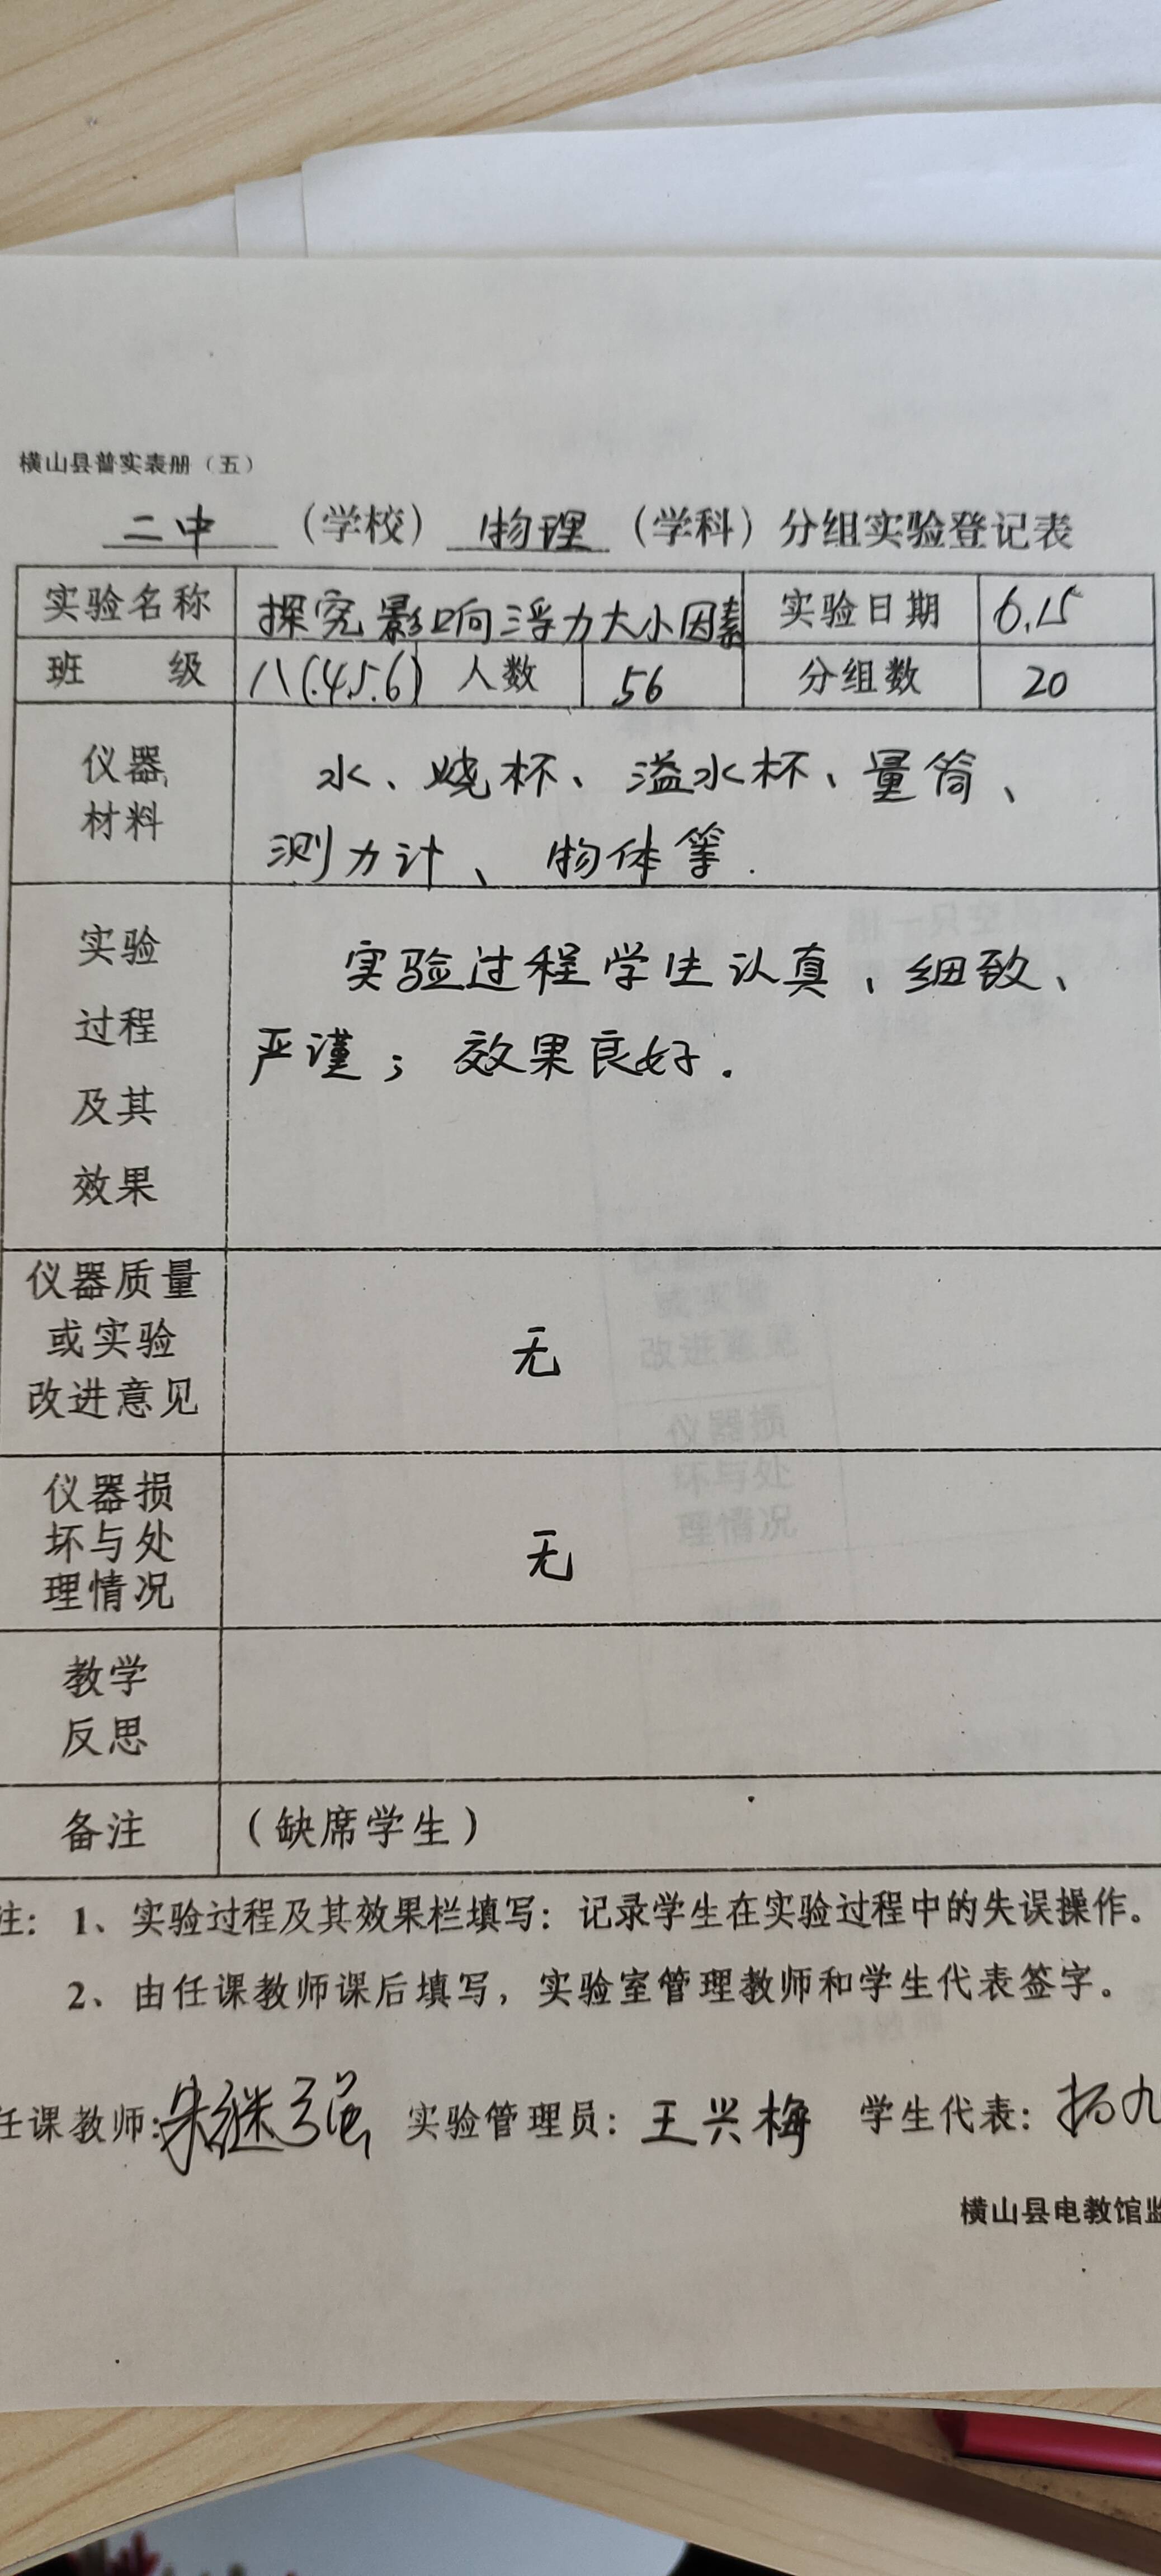 横山县普实表册（五）
二中（学校）物理（学科）分组实验登记表
实验名称 探究影响浮力大小因素 实验日期 6.15
班 级 八(4.5.6) 人数 56 分组数 20
仪器
材料
水、烧杯、溢水杯、量筒、
测力计、物体等.
实验
过程
及其
效果
实验过程学生认真、细致、
严谨；效果良好.
仪器质量
或实验
改进意见
无
仪器损
坏与处
理情况
无
教学
反思
备注 （缺席学生）
注：1、实验过程及其效果栏填写：记录学生在实验过程中的失误操作。
2、由任课教师课后填写，实验室管理教师和学生代表签字。
任课教师:朱继强 实验管理员：王兴梅 学生代表：
横山县电教馆监